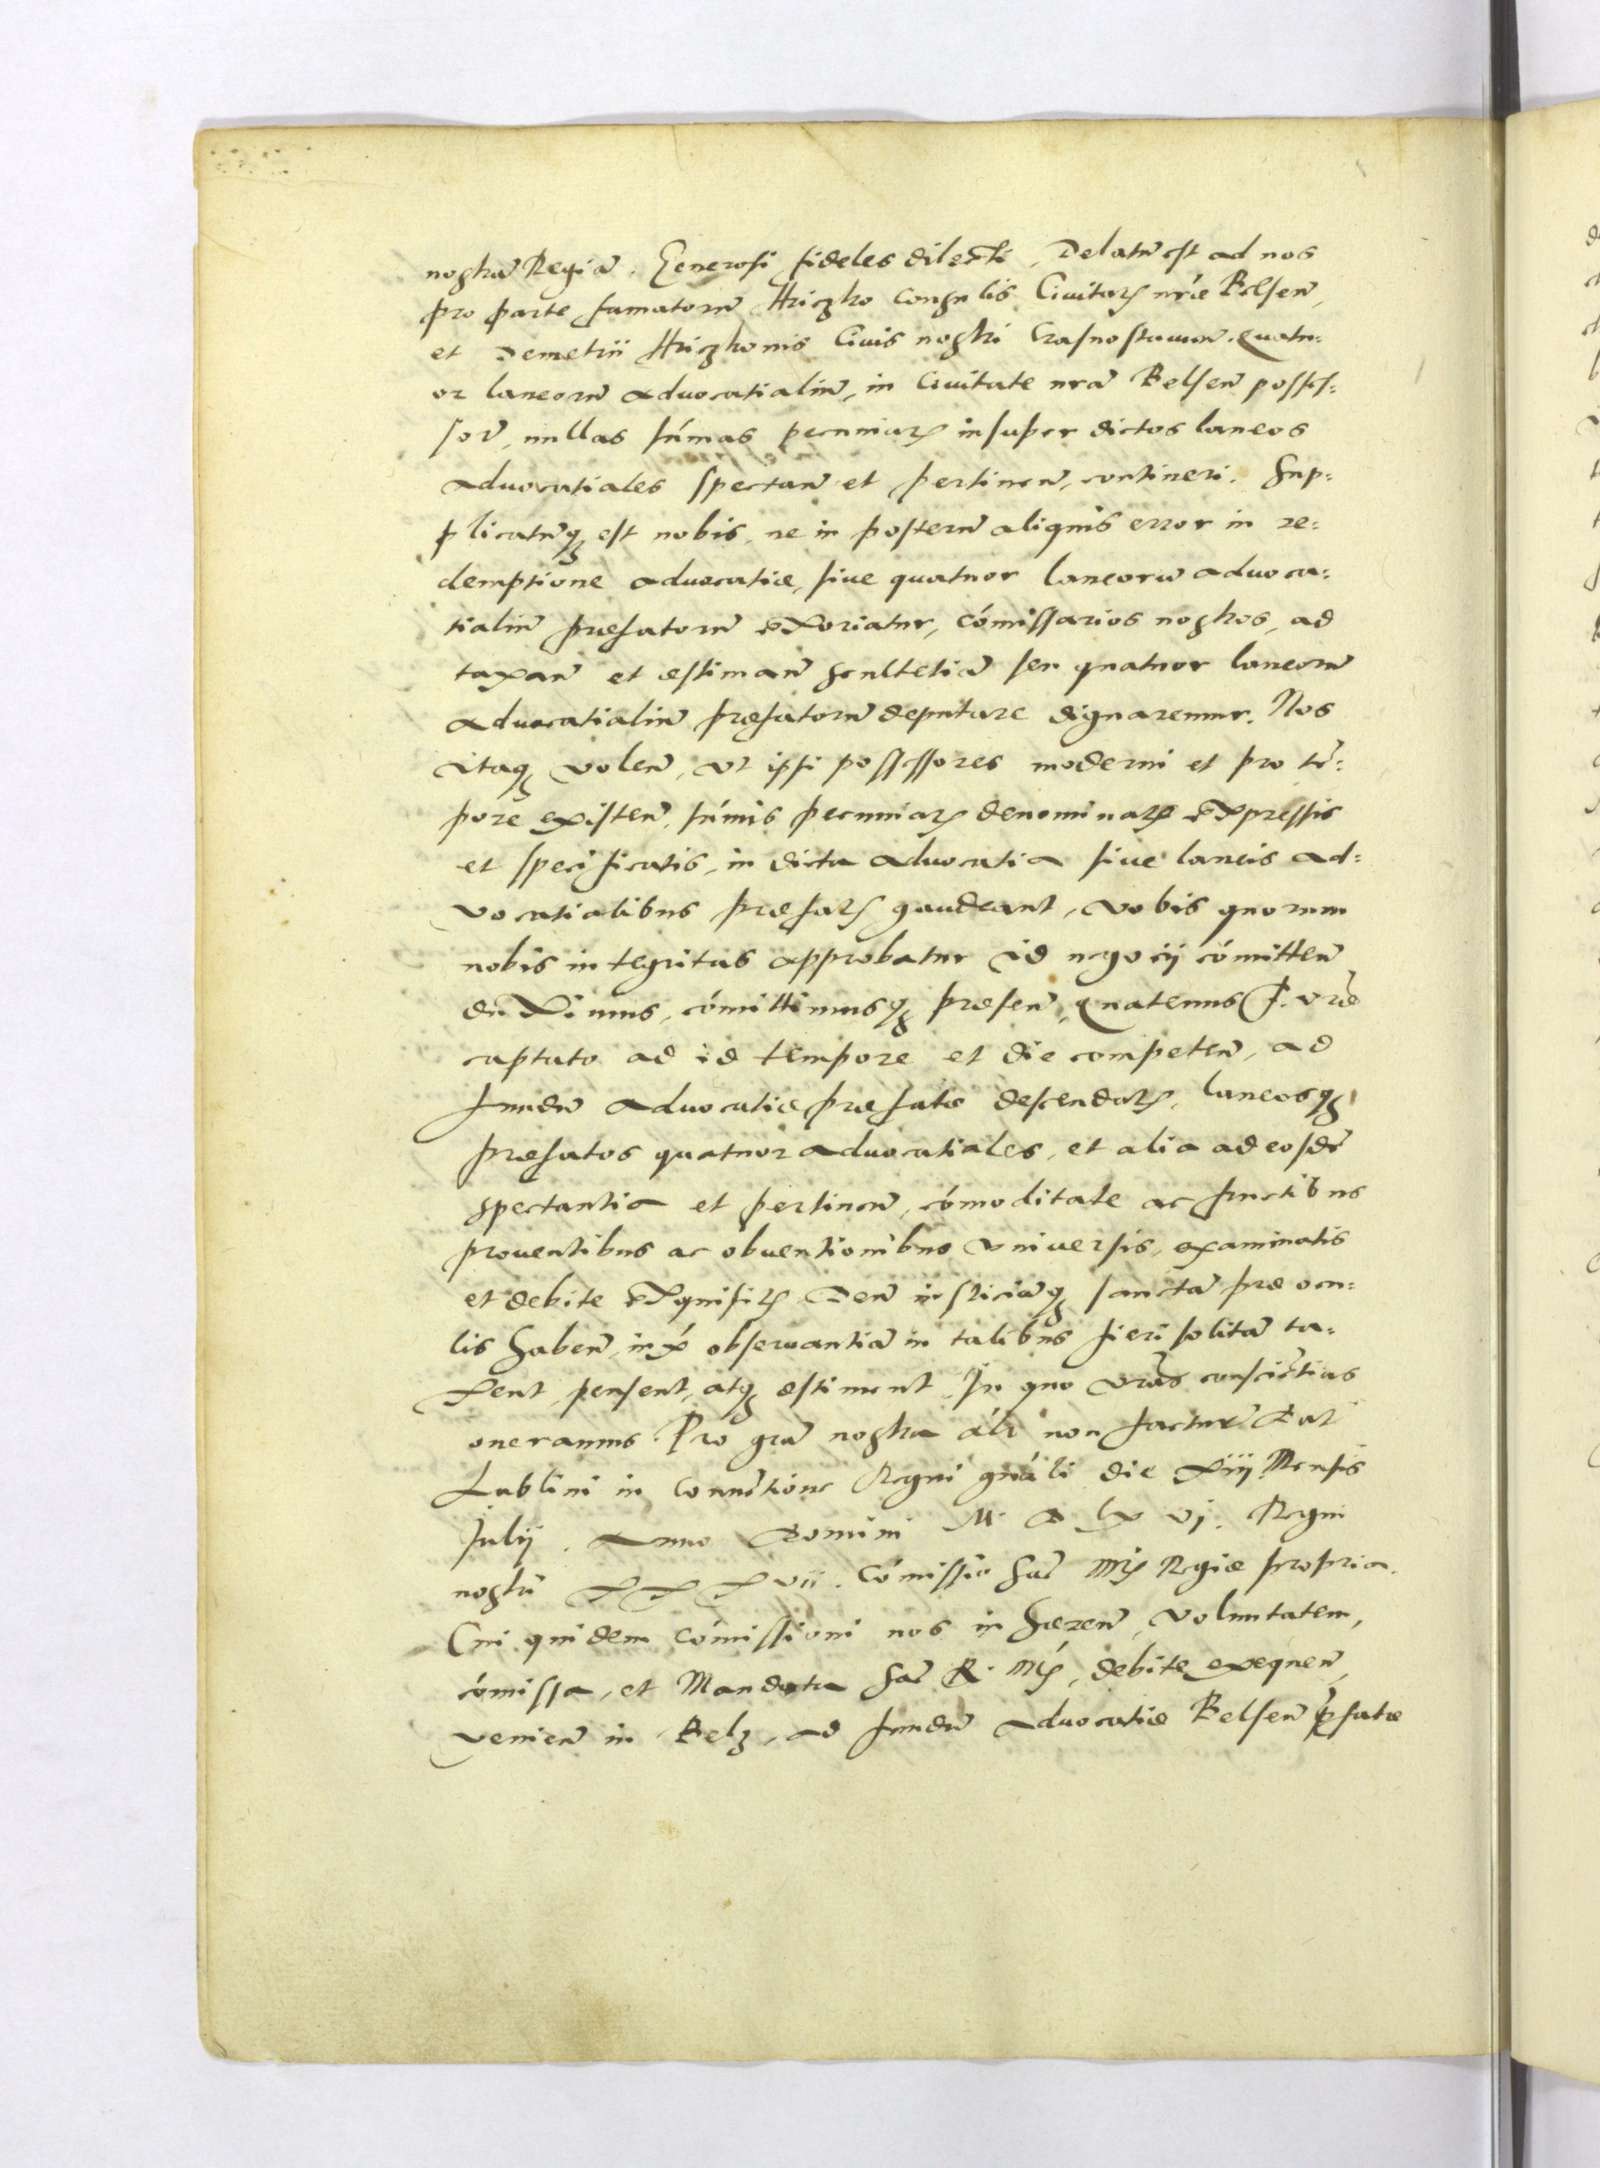 nostram Regiã. Generosi fideles dilecti, Delatũ est ad nos
pro parte famatorũ Hriczko Consulis Ciuitatis nrãe Belsen̄,
et Demetrii Hriczkonis Ciuis nostri Crasnostauien̄. Quatu-
or laneorũ aduocatialiũ, in Ciuitate nrã Belsen̄ posses-
sorũ, nullas sũmas pecuniaꝝ insuper dictos laneos
aduocatiales spectan̄ et pertinen̄, contineri. Sup-
plicatũqꝫ est nobis, ne in posterũ aliquis error in re-
demptione aduocatiæ, siue quatuor laneorũ aduoca-
tialiũ præfatorũ exoriatur, cõmissarios nostros, ad
taxan̄ et estiman̄ scultetiã seu quatuor laneorũ
aduocatialiũ præfatorũ deputare dignaremur. Nos
itaqꝫ volen̄, vt ipsi possessores moderni et pro tẽ-
pore existen̄, sũmis pecuniaꝝ denominatis expressis
et specificatis, in dicta aduocatia siue laneis ad-
uocatialibus præfatis gaudeant, vobis quorum
nobis integritas approbatur id negocii cõmitten̄
duximus, cõmittimusqꝫ præsen̄, Quatenus F. vrãe
captato ad id tempore et die competen̄, ad
fundũ aduocatiæ præfatæ descendatis, laneosqꝫ
præfatos quatuor aduocatiales, et alia ad eosdẽ
spectantia et pertinen̄, cõmoditate ac fructibus
prouentibus ac obuentionibus vniuersis, examinatis
et debite exquisitis Deũ iusticiãqꝫ sanctã præ ocu-
lis haben̄, iuxta obseruantiã in talibus fieri solitã ta-
xent, pensent, atqꝫ estiment. In quo vrãs consciẽtias
oneramus. Pro grã nostra alr̃ non factur̃. Dat̃
Lublini in Conuẽtione Regni gnãli die xiij Mensis
Julij. Anno Domini M. D. lx vj. Regni
nostri xxxvii. Cõmissio Sac̃ Mtis Regiæ propria.
Cui quidem cõmissioni nos inhæren̄, voluntatem,
cõmissa, et Mandata Sac̃ R. Mtis, debite exequen̄,
venien̄ in Belz, ad fundũ aduocatiæ Belsen̄ p̃fatæ